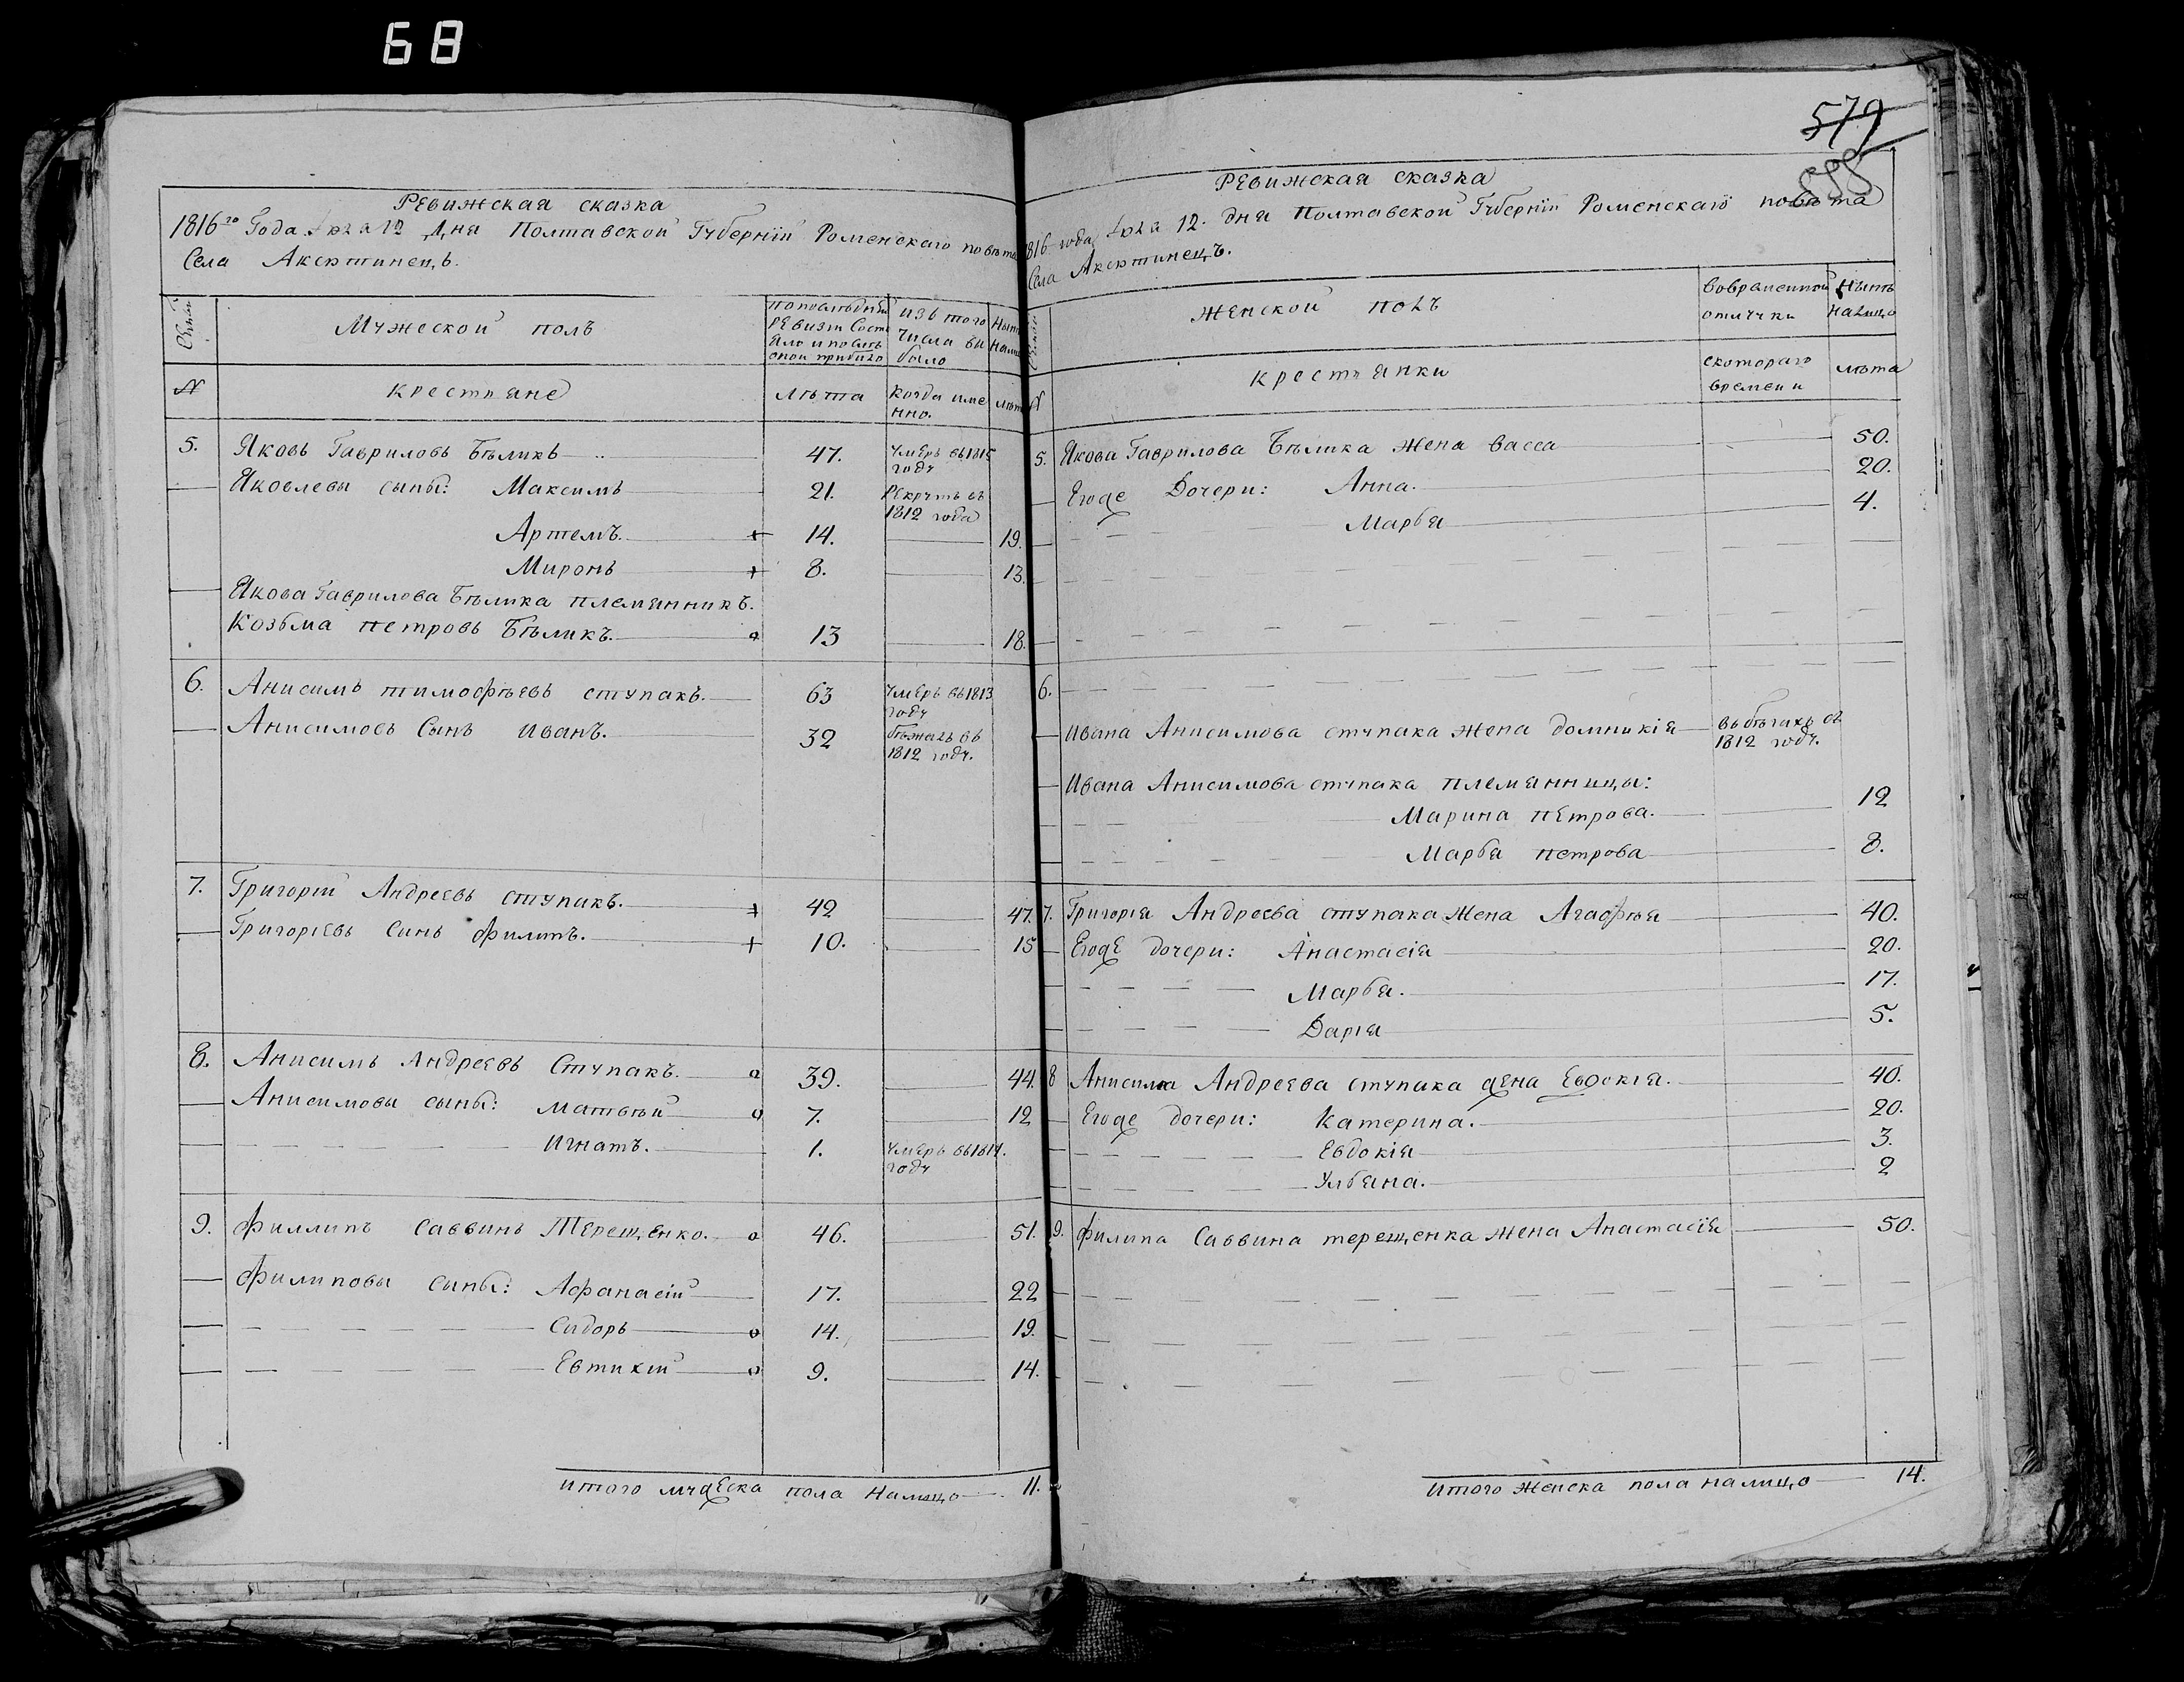 68
Ревижская сказка
1816го Года Июля 12 Дня Полтавской Губернии Роменскаго повѣта
Села Аксютинецъ.
Мужеской полъ
по последней ревизи состояло и послѣ оной прибыло
изъ того числа выбыло
Нынѣ налицо
№
крестьяне
лѣта
когда именно.
лѣта
5. Яковъ Гавриловъ Бѣликъ 47. умеръ въ 1815 году
Яковлевы сыны: Максимъ 21. Рекрутъ съ 1812 года
Артемъ. + 14. 19.
Миронъ + 8. 13.
Якова Гаврилова Бѣлика племянникъ.
Козьма петровъ Бѣликъ. о 13 18.
6. Анисимъ тимофѣевъ ступакъ. 63 умеръ въ 1813 году
Анисимовъ Сынъ Иванъ. 32 бѣжалъ въ 1812 году.
7. Григорий Андреевъ ступакъ. + 42 47.
Григориевъ Синъ Филипъ. + 10. 15
8. Анисимъ Андреевъ Ступакъ. о 39. 44.
Анисимовы сыны: матвѣй о 7. 12
Игнатъ. 1. умеръ въ 1814. году
9. Филлипъ Саввинъ Терещенко. о 46. 51.
Филиповы сыны: Афанасій 17. 22
Сидоръ о 14. 19.
Евтихий о 9. 14.
итого мужеска пола налицо 11.
579
Ревижская сказка
1816 года Июля 12. дня Полтавской Губерніи Роменскаго повѣта
Села Аксютинецъ.
Женской полъ
во временной отлучки
Нынѣ налицо
№
крестьянки
скотораго времени
лѣта
5. Якова Гаврилова Бѣлика жена Васса 50.
Егоже Дочери: Анна. 20.
Марья 4.
6.
Ивана Анисимова ступака жена домникія въ бѣгахъ съ 1812 году.
Ивана Анисимова ступака племянницы:
Марина петрова. 12
Марья петрова 8.
7. Григорія Андреева ступака жена Агафья 40.
Егоже дочери: Анастасія 20.
Марья. 17.
Дарія 5.
8 Анисима Андреева ступака жена Евдокія. 40.
Егоже дочери: Катерина. 20.
Евдокія 3.
Ульяна. 2
9. Филипа Саввина терещенка жена Анастасія 50.
Итого женска пола налицо 14.